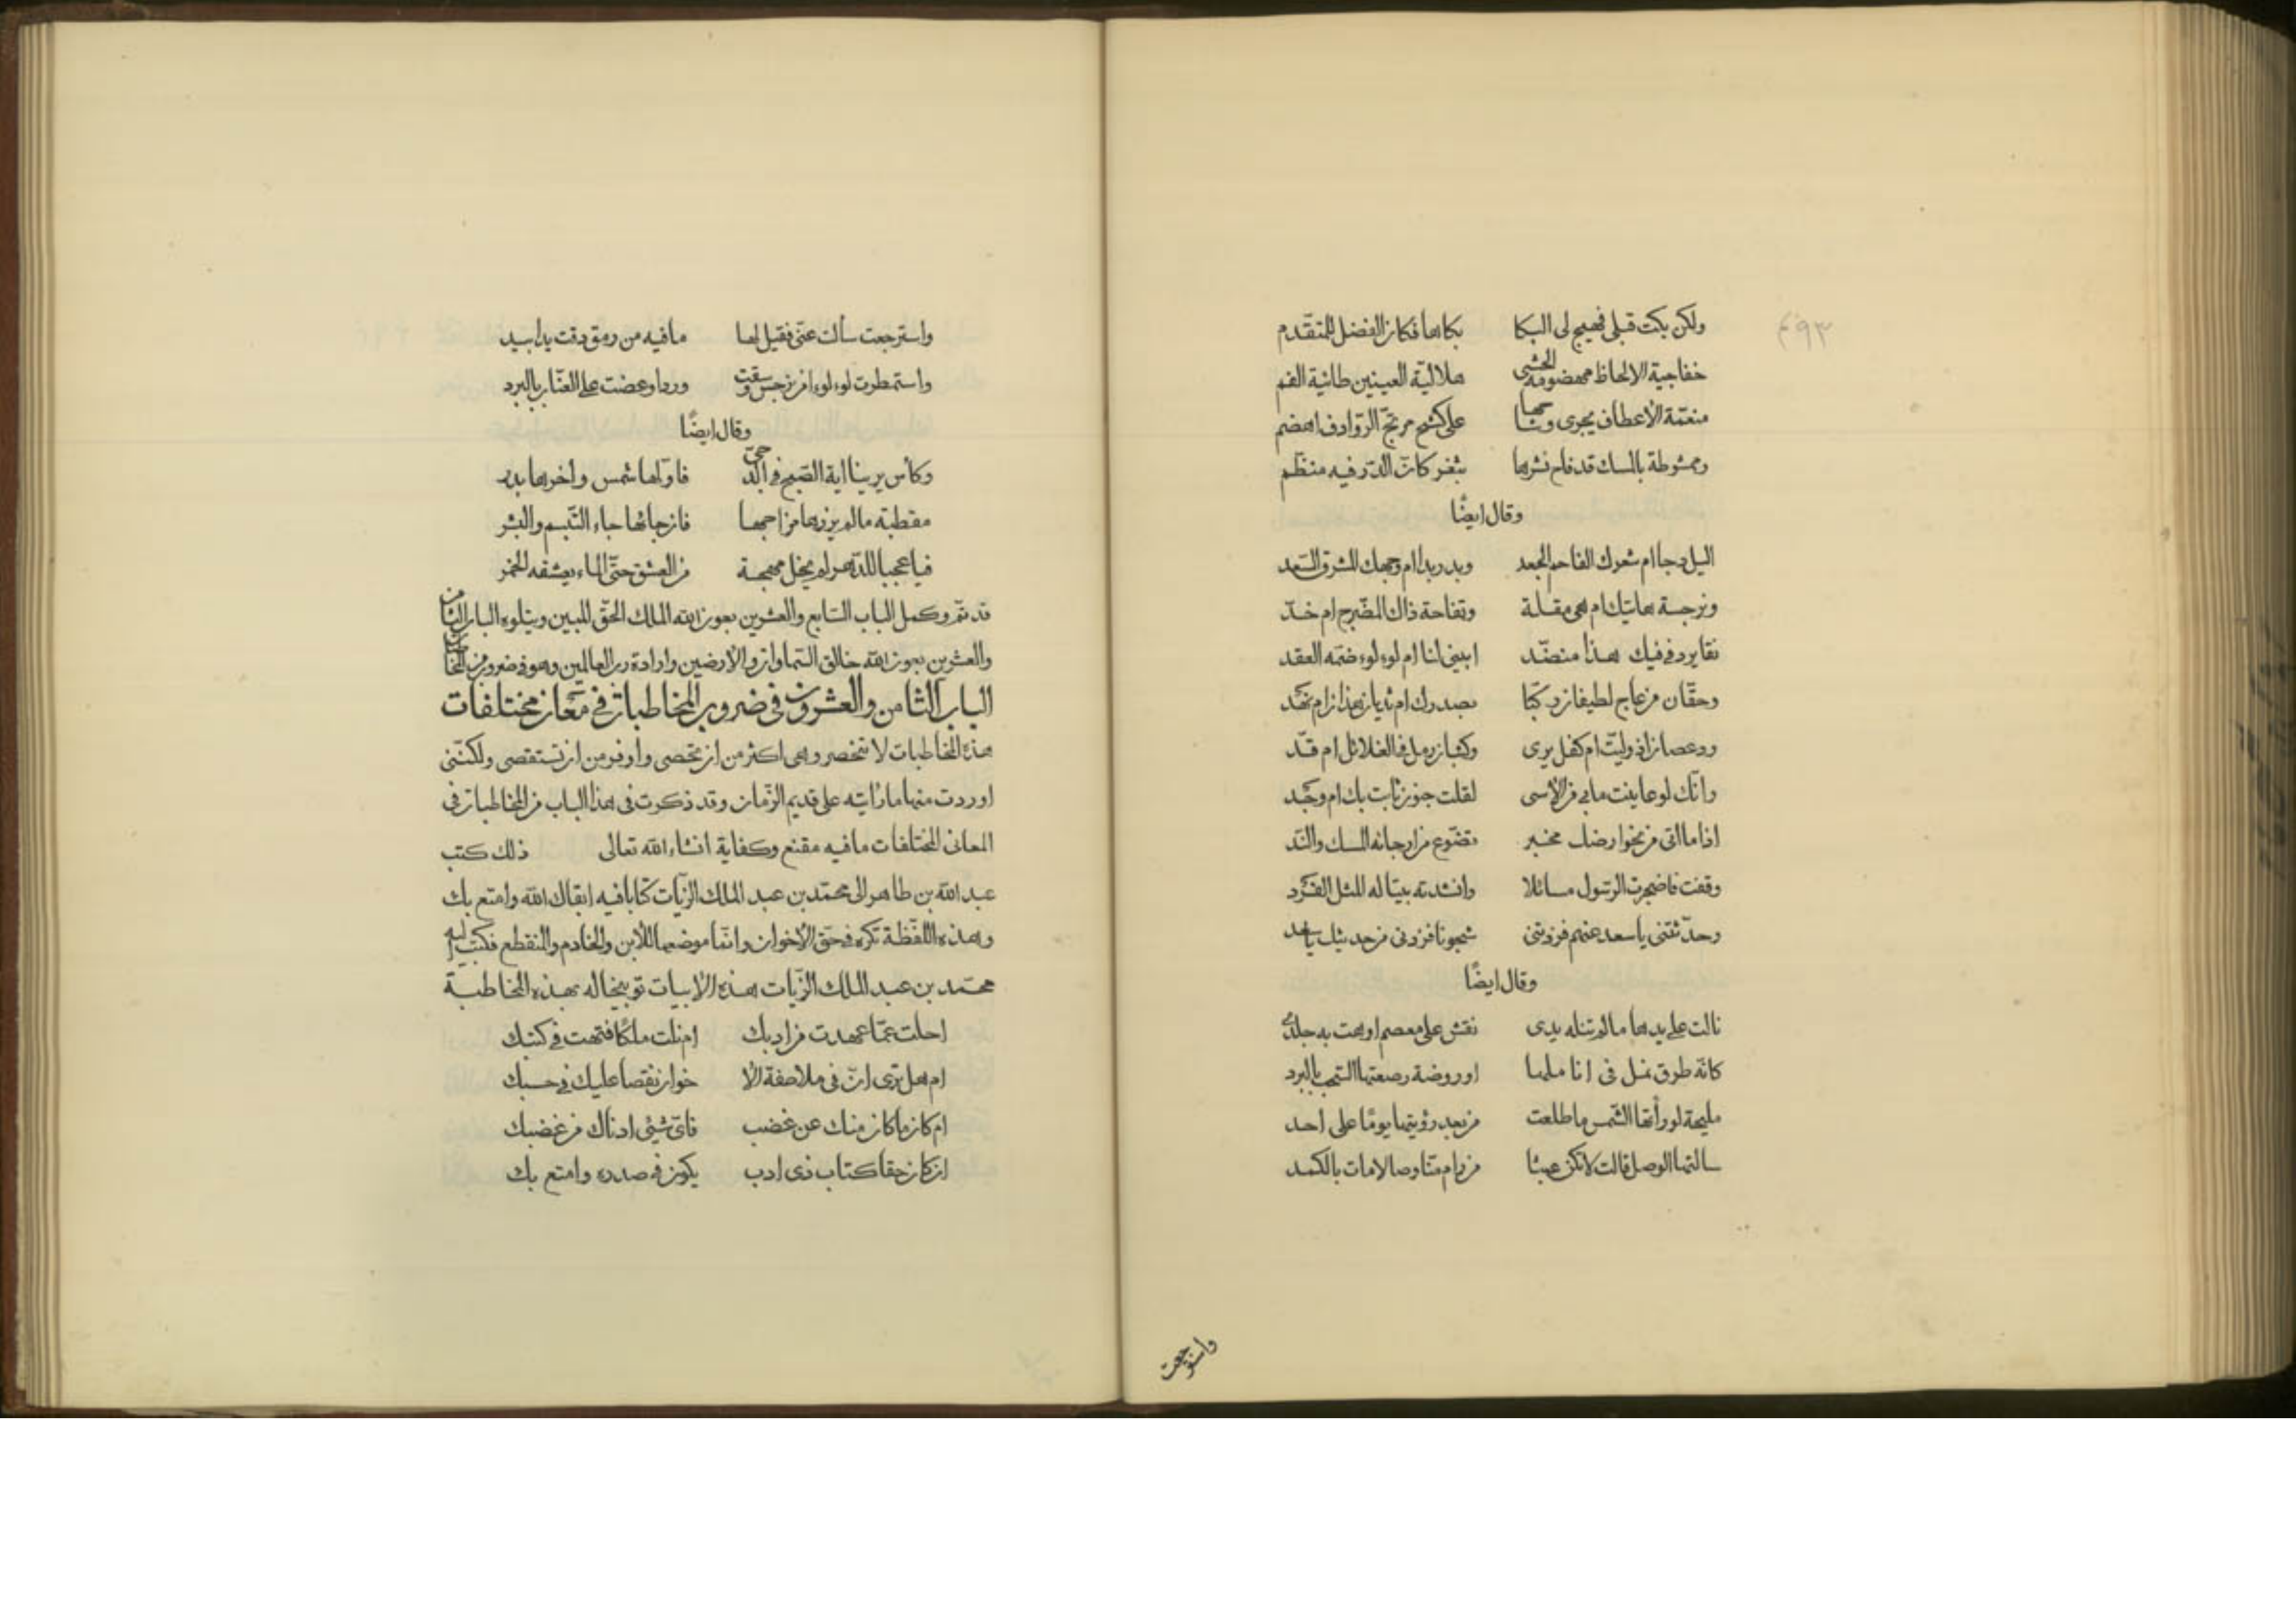 ٤٩٣
ولكن بكت قبلي فهيج لى البكا بكاها فكان الفضل للمتقدم
خفاجية الالحاظ مهضومة الحشى هلالية العينين طائية الفم
منعمة الاعطاف يجرى وشاحها على كشح مرتج الروادف اهضم
وممشوطة بالمسك قد فاح نشرها بثغر كان الدر فيه منظم
وقال ايضًا
اليل دجا ام شعرك الفاحم الجعد وبدر بدا ام وجهك المشرق السعد
ونرجسة هاتيك ام هى مقلة وتفاحة ذاك المضرج ام خد
نقا برد فى فيك هذا منضد ابينى لنا ام لوء لوء ضمه العقد
وحقان من عاج لطيفان ركبا بصدرك ام ثديان هذان ام نهد
ودعصان اذ وليت ام كفل يرى وكثبان رمل فى الغلائل ام قد
وانك لو عاينت ما بى من الاسى لقلت جنون ثابت بك ام وجد
اذا ما اتى من نحو ارضك مخبر تضوع من ارجائه المسك والند
وقفت فاضجرت الرسول مسائلا وانشدته بيتا له المثل الفرد
وحدثتنى يا سعد عنهم فزدتنى شجونا فزدنى من حديثك يا سعد
وقال ايضًا
نالت على يدها مالم تنله يدى نقش على معصم اوهت به جلدى
كانه طرق نمل فى اناملها او روضة رصعتها السحب بالبرد
مليحة لو رأتها الشمس ما طلعت من بعد رؤيتها يومًا على احد
سالتها الوصل قالت لا تكن عبثا من رام منا وصالا مات بالكمد
واسترجعت
واسترجعت سألت عنى فقيل لها مافيه من رمق دقت يدا بيد
واستمطرت لوء لوءا من نرجس وسقت وردا وعضت على العناب بالبرد
وقال ايضًا
وكأس يرينا اية الصبح فى الدجى فاولها شمس واخرها بدر
مقطبة مالم يزرها مزاجها فان جاءها جاء التبسم والبشر
فيا عجبا للدهر لم يخل مهجة من العشق حتى الماء يعشقه الخمر
قد تم وكمل الباب السابع والعشرين بعون الله الملك الحق المبين ويتلوه الباب الثامن
والعشرين بعون الله خالق السماوات والارضين وارادة رب العالمين وهو فى ضروب من المخاطبات
الباب الثامن والعشرون فى ضروب المخاطبات فى معان مختلفات
هذه المخاطبات لا تنحصر وهى اكثر من ان تحصى واوفر من ان تستقصى ولكننى
اوردت منها ما رأيته على قديم الزمان وقد ذكرت فى هذا الباب من المخاطبات فى
المعانى المختلفات ما فيه مقنع وكفاية انشاء الله تعالى ذلك كتب
عبد الله بن طاهر الى محمد بن عبد الملك الزيات كتابا فيه ابقاك الله وامتع بك
وهذه اللفظة تكره فى حق الاخوان وانما موضعها للابن والخادم والمنقطع فكتب اليه
محمد بن عبد الملك الزيات هذه الابيات توبيخا له بهذه المخاطبة
احلت عما عهدت من ادبك ام نلت ملكًا فتهت فى كتبك
ام هل ترى ان فى ملاصفة الا خوان نقصا عليك فى حسبك
ام كان ما كان منك عن غضب فاى شيئ ادناك من غضبك
ان كان حقا كتاب ذى ادب يكون فى صدره وامتع بك